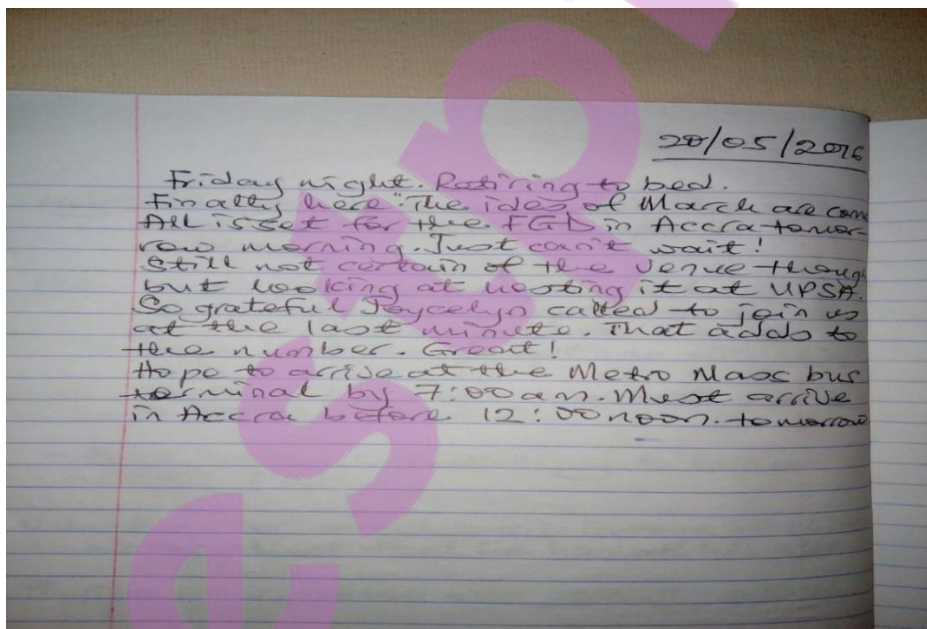 28/05/2016
Friday night. Retiring to bed.
Finally here "The ides of March are come
All is set for the FGD in Accra tomor-
row morning. Just can't wait!
Still not certain of the venue though
but looking at hosting it at UPSA.
So grateful Joycelyn called to join us
at the last minute. That adds to
the number. Great!
Hope to arrive at the Metro Mass bus
terminal by 7:00 am. Must arrive
in Accra before 12:00 noon. tomorrow